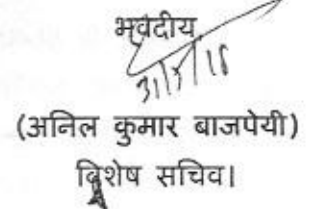 भवदीय
31/7/18
(अनिल कुमार बाजपेयी)
विशेष सचिव।